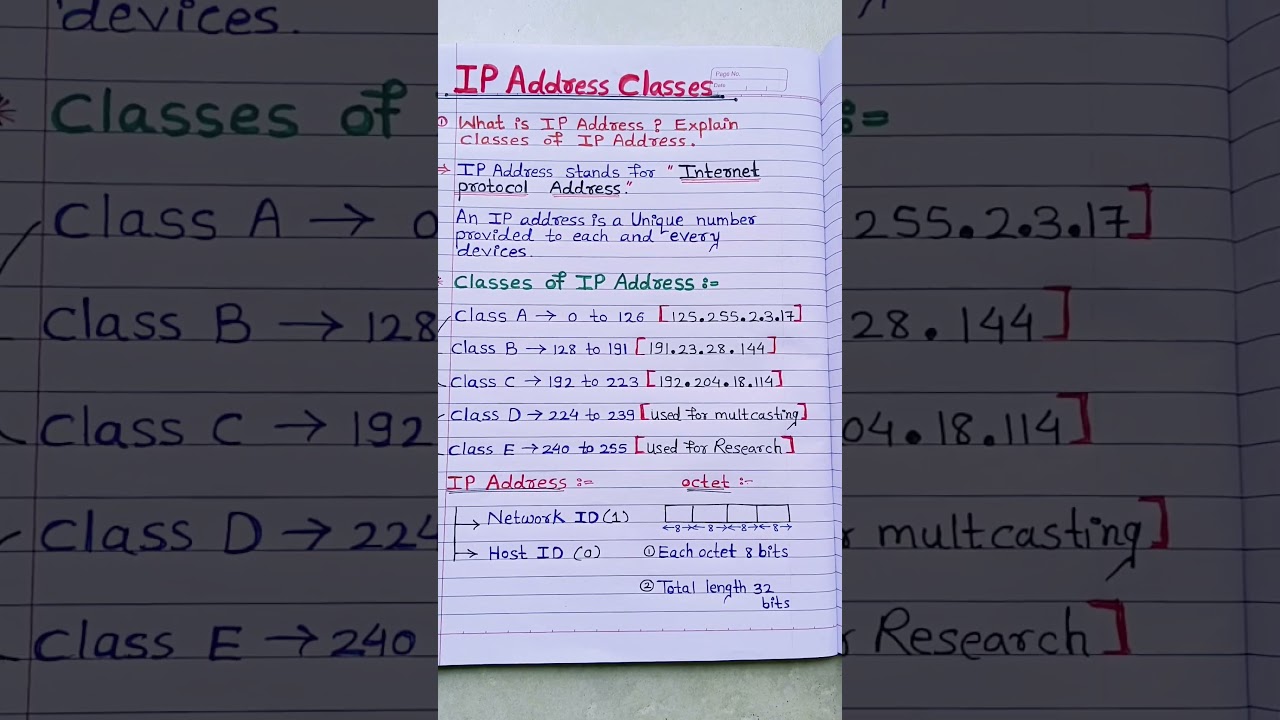 devices.
Classes of
:=
Class A → 0
255.2.3.17]
Class B → 128
28.144]
Class C → 192
04.18.114]
Class D → 224
multcasting]
Class E → 240
Research]
IP Address Classes
Page No.
Date
① What is IP Address? Explain
classes of IP Address.
→ IP Address stands for "Internet
protocol Address."
An IP address is a Unique number
provided to each and every
devices.
* Classes of IP Address :=
Class A → 0 to 126 [125.255.2.3.17]
Class B → 128 to 191 [191.23.28.144]
Class C → 192 to 223 [192.204.18.114]
Class D → 224 to 239 [used for multcasting]
Class E → 240 to 255 [used for Research]
IP Address :=
→ Network ID (1)
→ Host ID (0)
octet :-
←8→←8→←8→←8→
① Each octet 8 bits
② Total length 32
bits